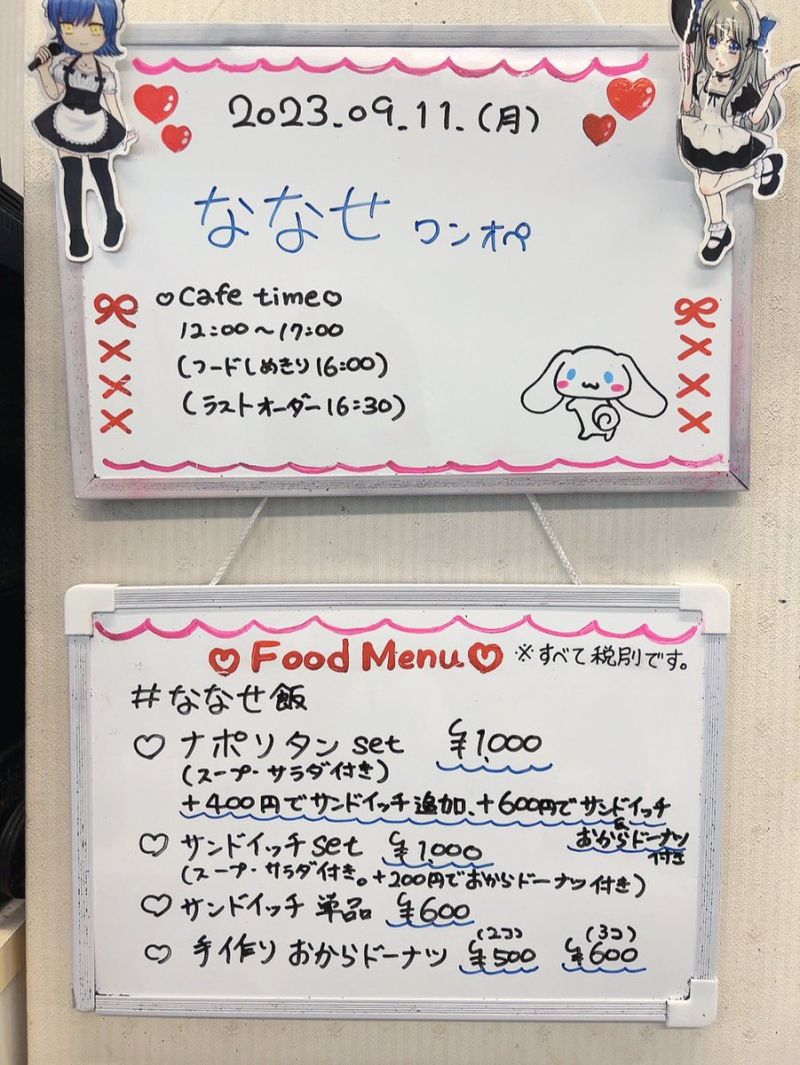 2023.09.11.(月)
ななせ ワンオペ
♡Cafe time♡
12:00〜17:00
(フードしめきり16:00)
(ラストオーダー16:30)
♡Food Menu♡ ※すべて税別です。
#ななせ飯
♡ ナポリタン set ¥1,000
(スープ・サラダ付き)
+400円でサンドイッチ追加、+600円でサンドイッチ
&おからドーナツ付き
♡ サンドイッチ set ¥1,000
(スープ・サラダ付き。+200円でおからドーナツ付き)
♡ サンドイッチ 単品 ¥600
♡ 手作り おからドーナツ (2コ) ¥500 (3コ) ¥600